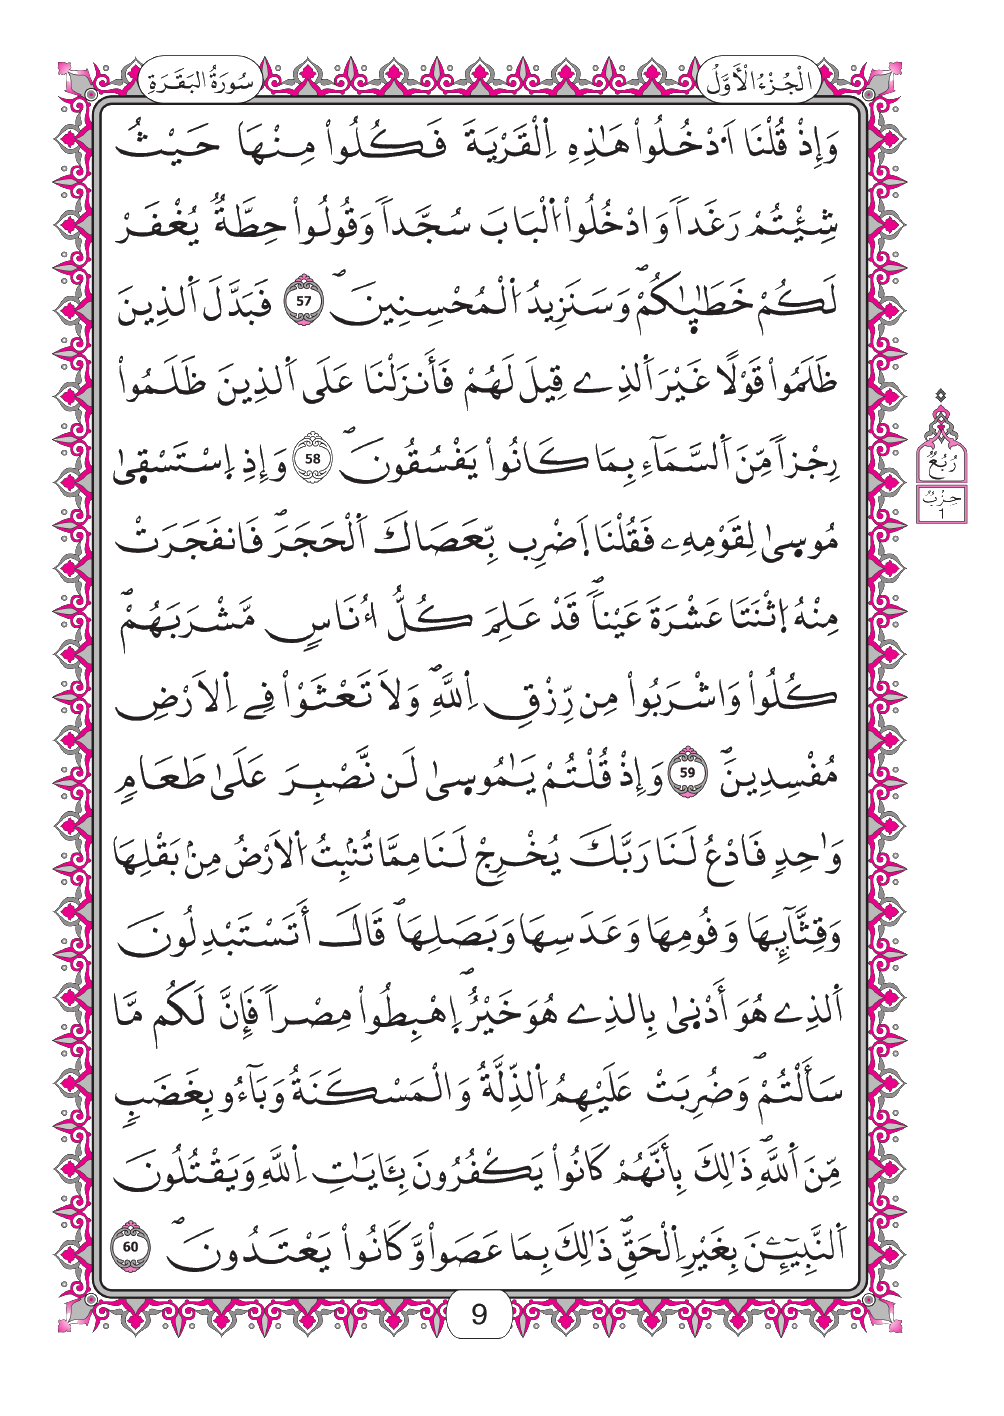 الْجُزْءُ الْأَوَّلُ
سُورَةُ البَقَرَةِ
وَإِذْ قُلْنَا اَ۟دْخُلُواْ هَٰذِهِ اِ۬لْقَرْيَةَ فَكُلُواْ مِنْهَا حَيْثُ
شِئْتُمْ رَغَداٗ وَادْخُلُواْ اُ۬لْبَابَ سُجَّداٗ وَقُولُواْ حِطَّةٞ يُغْفَرْ
لَكُمْ خَطَٰيَٰكُمْۖ وَسَنَزِيدُ اُ۬لْمُحْسِنِينَۖ 57 فَبَدَّلَ اَ۬لذِينَ
ظَلَمُواْ قَوْلًا غَيْرَ اَ۬لذِے قِيلَ لَهُمْ فَأَنزَلْنَا عَلَى اَ۬لذِينَ ظَلَمُواْ
رِجْزاٗ مِّنَ اَ۬لسَّمَآءِ بِمَا كَانُواْ يَفْسُقُونَۖ 58 وَإِذِ اِ۪سْتَسْق۪ىٰ
مُوس۪ىٰ لِقَوْمِهِۦ فَقُلْنَا اَ۪ضْرِب بِّعَصَاكَ اَ۬لْحَجَرَۖ فَانفَجَرَتْ
مِنْهُ اُ۪ثْنَتَا عَشْرَةَ عَيْناٗۖ قَدْ عَلِمَ كُلُّ أُنَاسٖ مَّشْرَبَهُمْۖ
كُلُواْ وَاشْرَبُواْ مِن رِّزْقِ اِ۬للَّهِۖ وَلَا تَعْثَوْاْ فِے اِ۬لَارْضِ
مُفْسِدِينَۖ 59 وَإِذْ قُلْتُمْ يَٰمُوس۪ىٰ لَن نَّصْبِرَ عَلَىٰ طَعَامٖ
وَٰحِدٖ فَادْعُ لَنَا رَبَّكَ يُخْرِجْ لَنَا مِمَّا تُنۢبِتُ اُ۬لَارْضُ مِنۢ بَقْلِهَا
وَقِثَّآئِهَا وَفُومِهَا وَعَدَسِهَا وَبَصَلِهَاۖ قَالَ أَتَسْتَبْدِلُونَ
اَ۬لذِے هُوَ أَدْن۪ىٰ بِالذِے هُوَ خَيْرٌۖ اِ۪هْبِطُواْ مِصْراٗ فَإِنَّ لَكُم مَّا
سَأَلْتُمْۖ وَضُرِبَتْ عَلَيْهِمُ اُ۬لذِّلَّةُ وَالْمَسْكَنَةُ وَبَآءُو بِغَضَبٖ
مِّنَ اَ۬للَّهِۖ ذَٰلِكَ بِأَنَّهُمْ كَانُواْ يَكْفُرُونَ بِـَٔايَٰتِ اِ۬للَّهِ وَيَقْتُلُونَ
اَ۬لنَّبِيٓـِٕۧنَ بِغَيْرِ اِ۬لْحَقِّۖ ذَٰلِكَ بِمَا عَصَواْ وَّكَانُواْ يَعْتَدُونَۖ 60
رُبُعُ
حِزْبُ
1
9